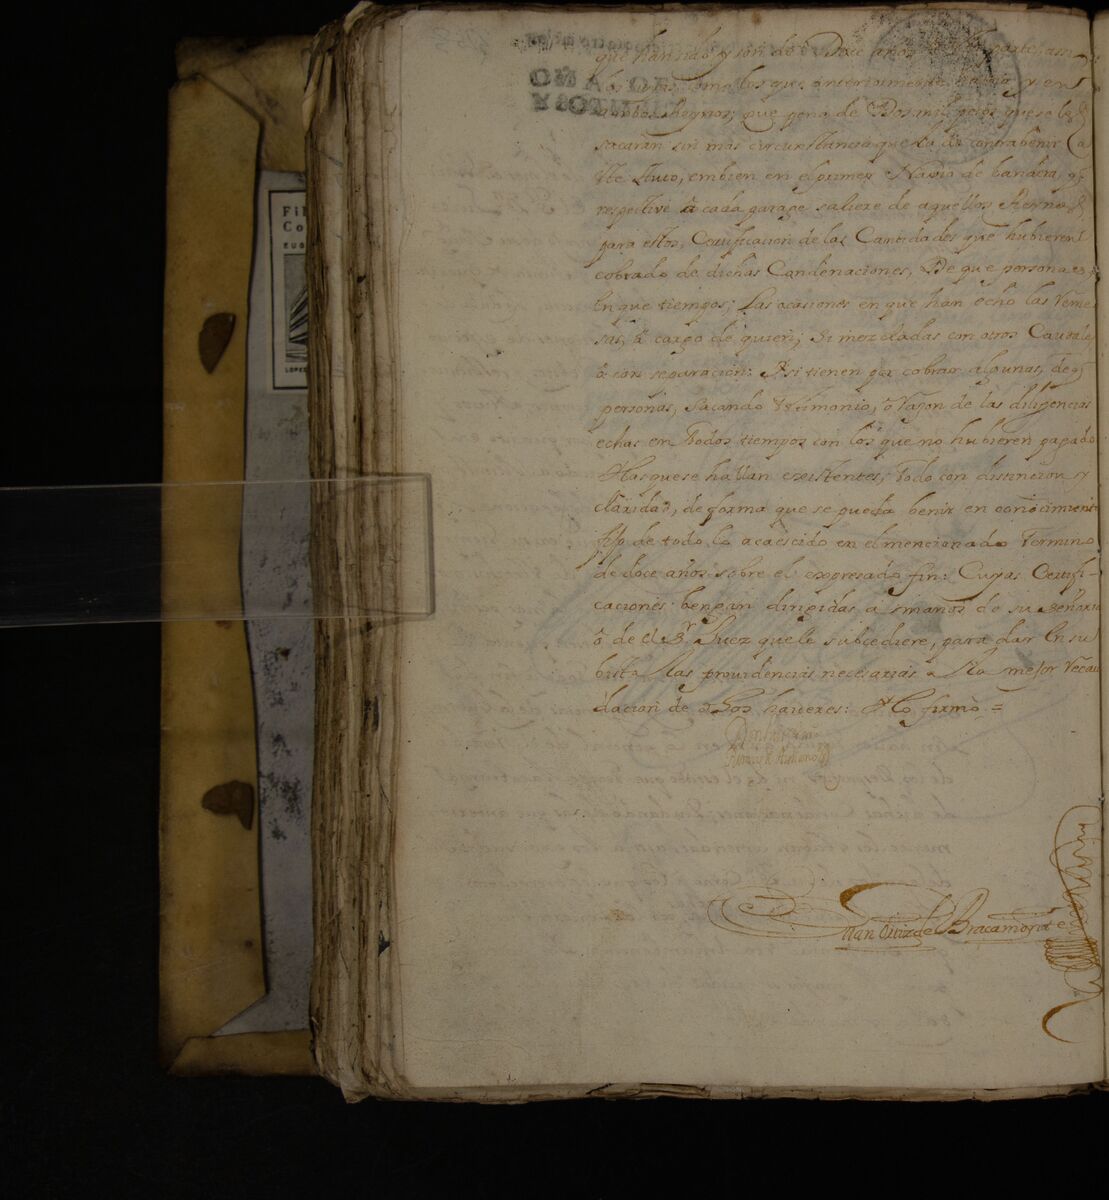 que han sido y son de Doce años
los unos como los que anteriormente
ambos Reynos, que pena de Dos mil pesos que se le
sacarán sin más circunstancia que la de contrabenir a
este Auto, embien en el primer Navio de bandera, q̃
respective â cada parage saliere de aquellos Reynos
para estos, Certificacion de las Cantidades que hubieren
cobrado de dichas Condenaciones, De que personas
en que tiempos; Las ocasiones en que han echo las Reme
sas, â cargo de quien; Si mezcladas con otros Caudales
ô con separacion: Y si tienen por cobrar algunas, de q̃
personas, sacando testimonio, ô razon de las diligencias
echas en todos tiempos con los que no hubieren pagado
que se hallan existentes; todo con distincion y
claridad, de forma que se pueda benir en conocimiento
fijo de todo lo acaescido en el mencionado Termino
de doce años sobre el expresado fin: Cuyas Certifi-
caciones bengan dirigidas a manos de su Señoria
ô de el Sr. Juez que le subcediere, para dar en su
bista las providencias necesarias a la mejor recau
dacion de estos haveres: Y lo firmò =
Juan Ortiz de Bracamonte
Fil
Co
EUG
LOPE